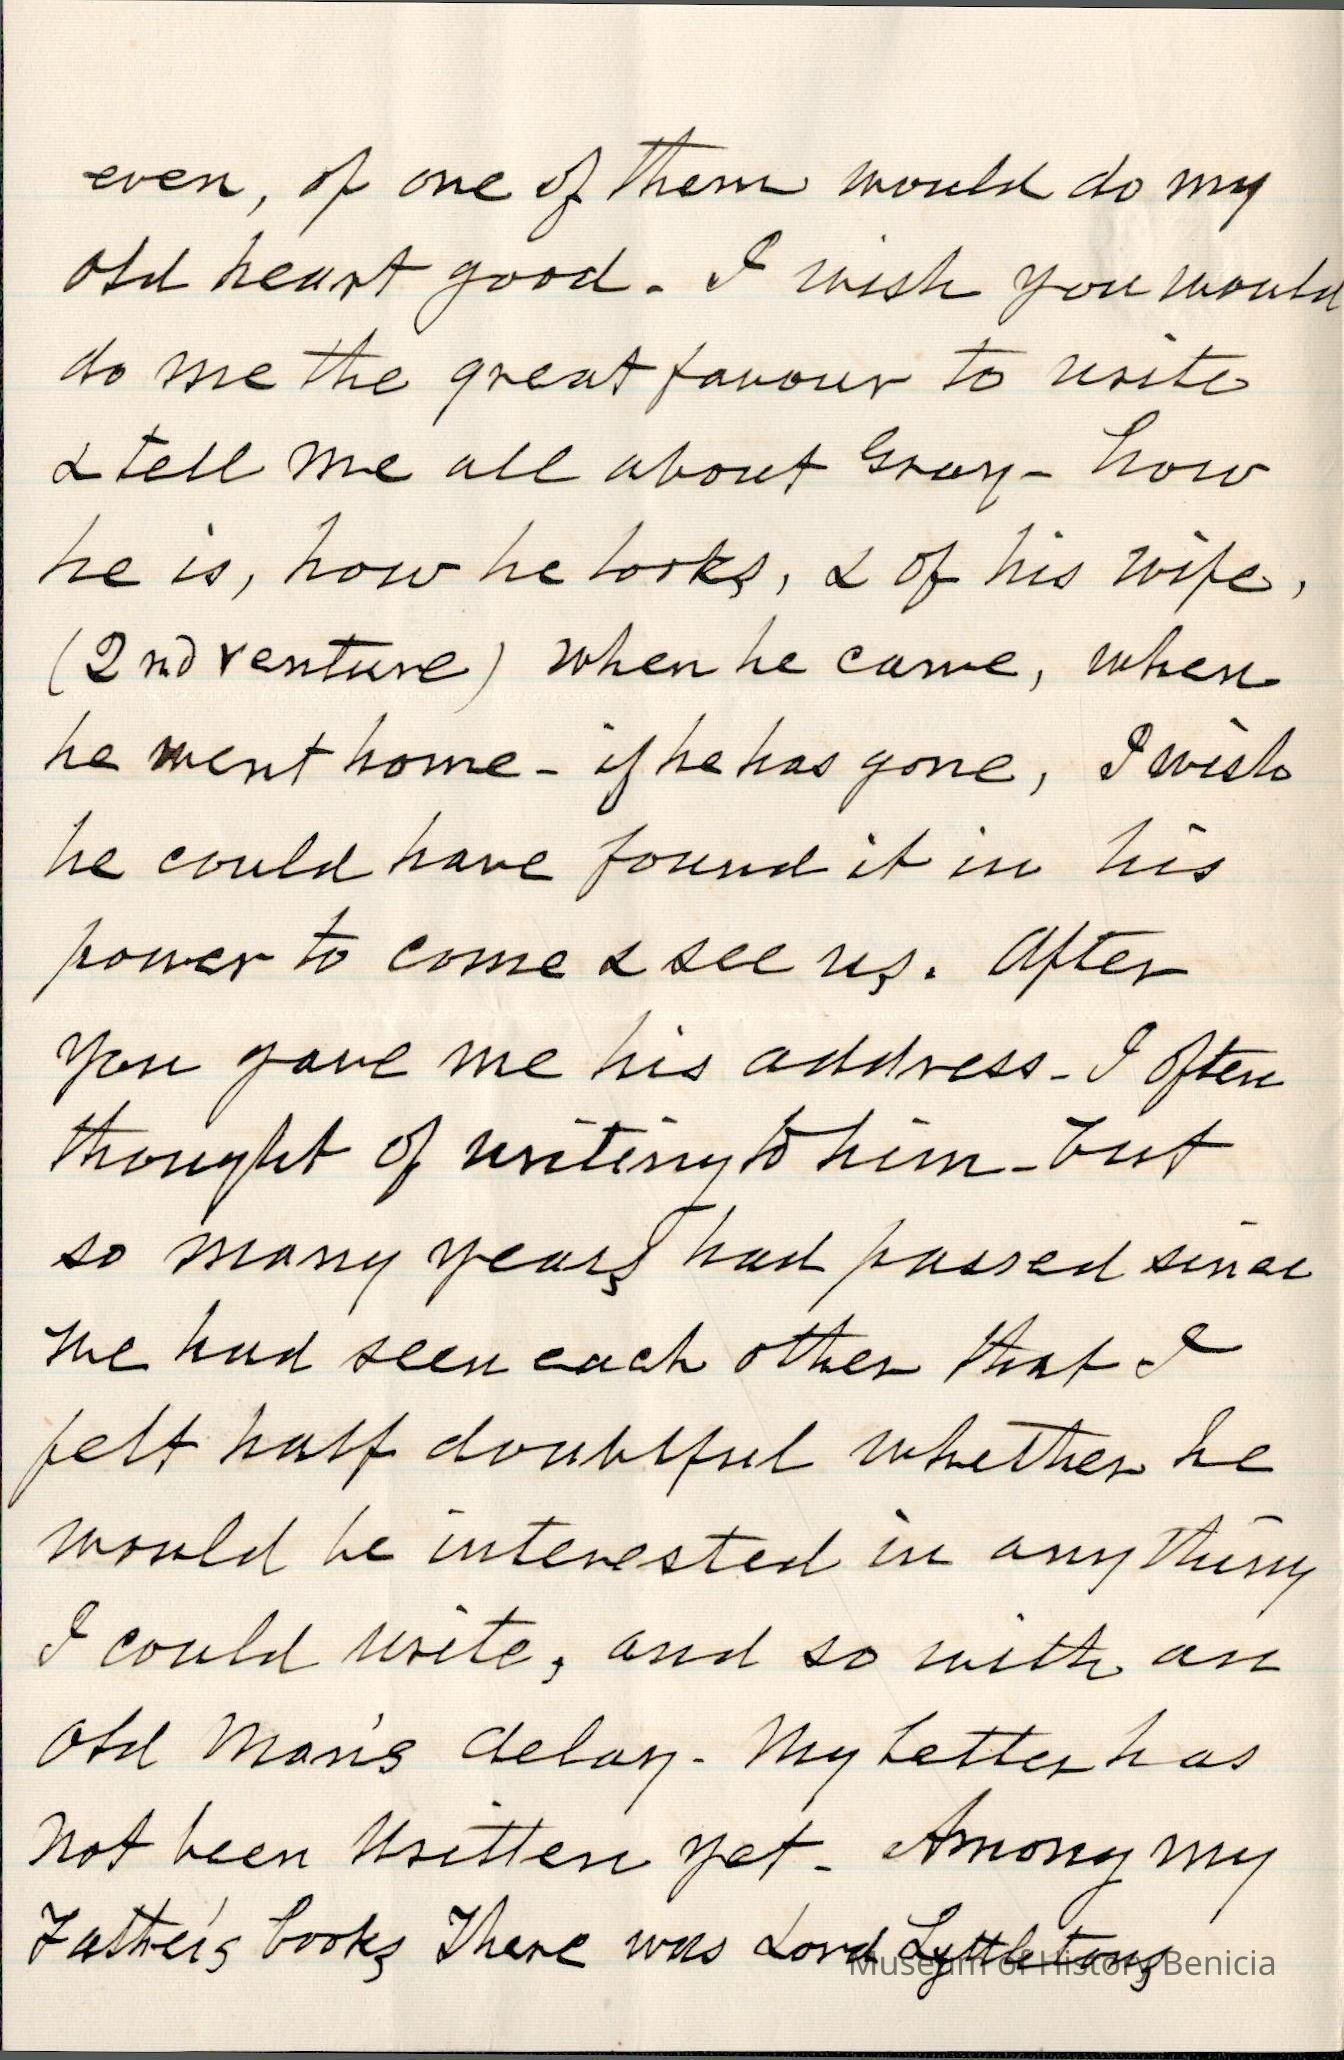 even, of one of them would do my
old heart good. I wish you would
do me the great favour to write
& tell me all about Gray - how
he is, how he looks, & of his wife,
(2nd venture) when he came, when
he went home - if he has gone, I wish
he could have found it in his
power to come & see us. After
you gave me his address - I often
thought of writing to him - but
so many years had passed since
we had seen each other that I
felt half doubtful whether he
would be interested in any thing
I could write, and so with an
old man's delay - My letter has
not been written yet - Among my
Father's books There was Lord Lyttletons
Museum of History Benicia